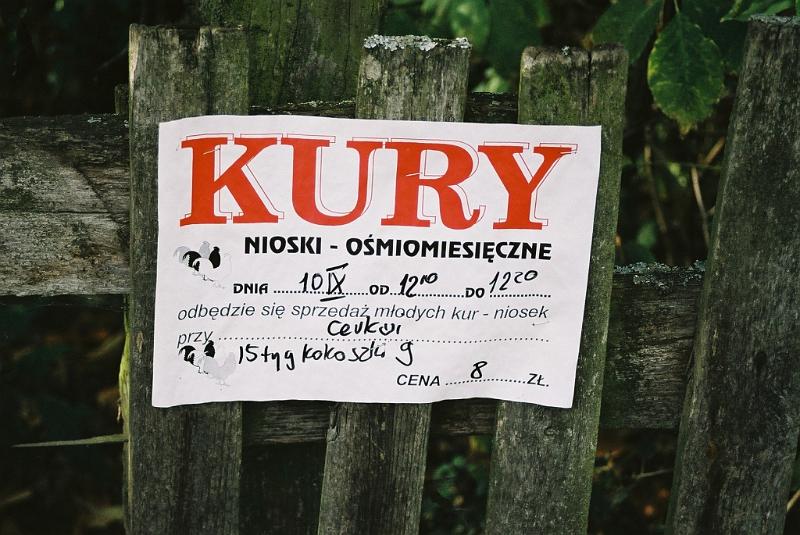 KURY
NIOSKI - OŚMIOMIESIĘCZNE
DNIA ... 10 IX ... OD 12 10 ... DO 12 20
odbędzie się sprzedaż młodych kur - niosek
przy ...
15 tyg kokoszki 9
CENA ... 8 ... ZŁ.